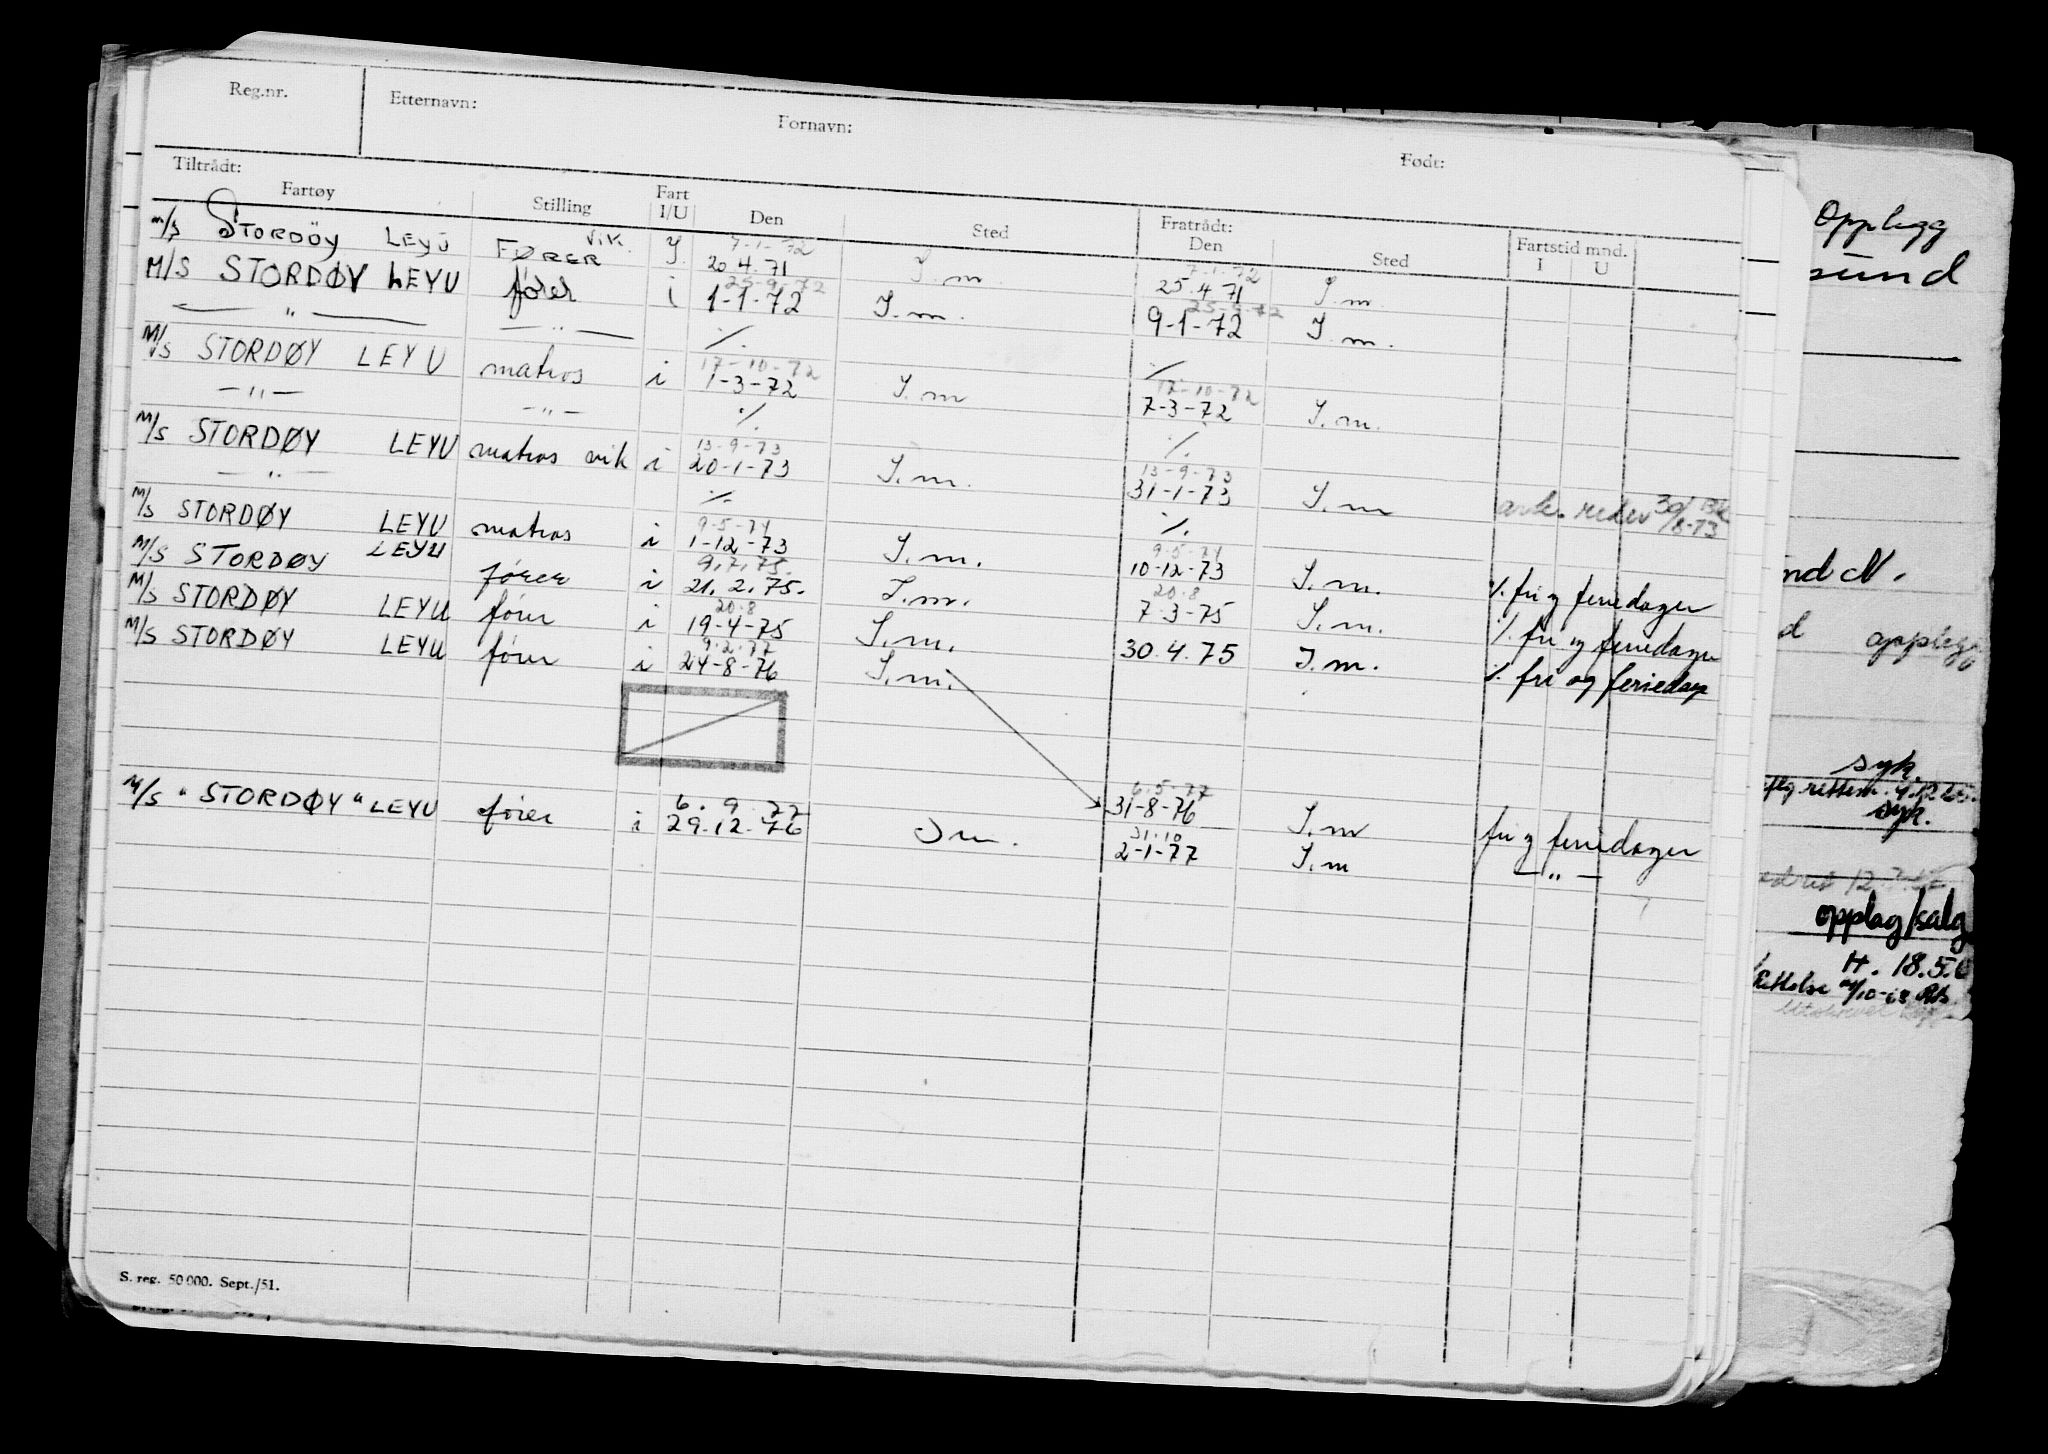 Reg.nr. Etternavn: Fornavn: Født:
Tiltrådt: Fratrådt:
Fartøy Stilling Fart I/U Den Sted Den Sted Fartstid mnd. I U
M/S STORDØY LEYU FØRER vik. I. 7-1-72 20.4.71 I.m. 7.1.72 25.4.71 I.m.
M/S STORDØY LEYU fører i 25-9-72 1-1-72 I.m. 25-9-72 9-1-72 I.m.
— " — — " — ./. ./.
M/S STORDØY LEYU matros i 17-10-72 1-3-72 I.m 17-10-72 7-3-72 I.m.
— " — — " — ./. ./.
M/S STORDØY LEYU matros vik i 13-9-73 20-1-73 I.m. 13-9-73 31-1-73 I.m
— " — ./. ./.
M/S STORDØY LEYU matros i 9-5-74 1-12-73 I.m. 9-5-74 10-12-73 I.m. ./. fri og feriedager
M/S STORDØY LEYU fører i 9.7.75. 21.2.75. I.m. 20.8 7-3-75 I.m. ./. fri og feriedager
M/S STORDØY LEYU fører i 20.8 19-4-75 I.m. 30.4.75 I.m. ./. fri og feriedager
M/S STORDØY LEYU fører i 9.2.77 24-8-76 I.m. 6.5-77 31-8-76 I.m fri og feriedager
M/S "STORDØY" LEYU fører i 6.9.77 29.12.76 I m. 31.10 2-1-77 I.m — " —
S. reg. 50 000. Sept./51.
Opplegg
sund
nd N.
d opplegg
syk.
syk.
opplag/salg
H. 18.5.6